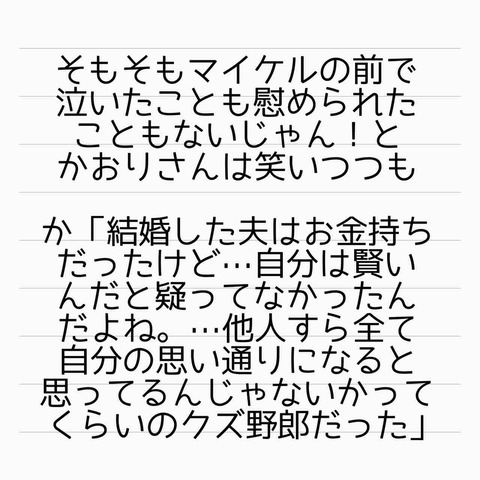 そもそもマイケルの前で
泣いたことも慰められた
こともないじゃん！と
かおりさんは笑いつつも
か「結婚した夫はお金持ち
だったけど…自分は賢い
んだと疑ってなかったん
だよね。…他人すら全て
自分の思い通りになると
思ってるんじゃないかって
くらいのクズ野郎だった」